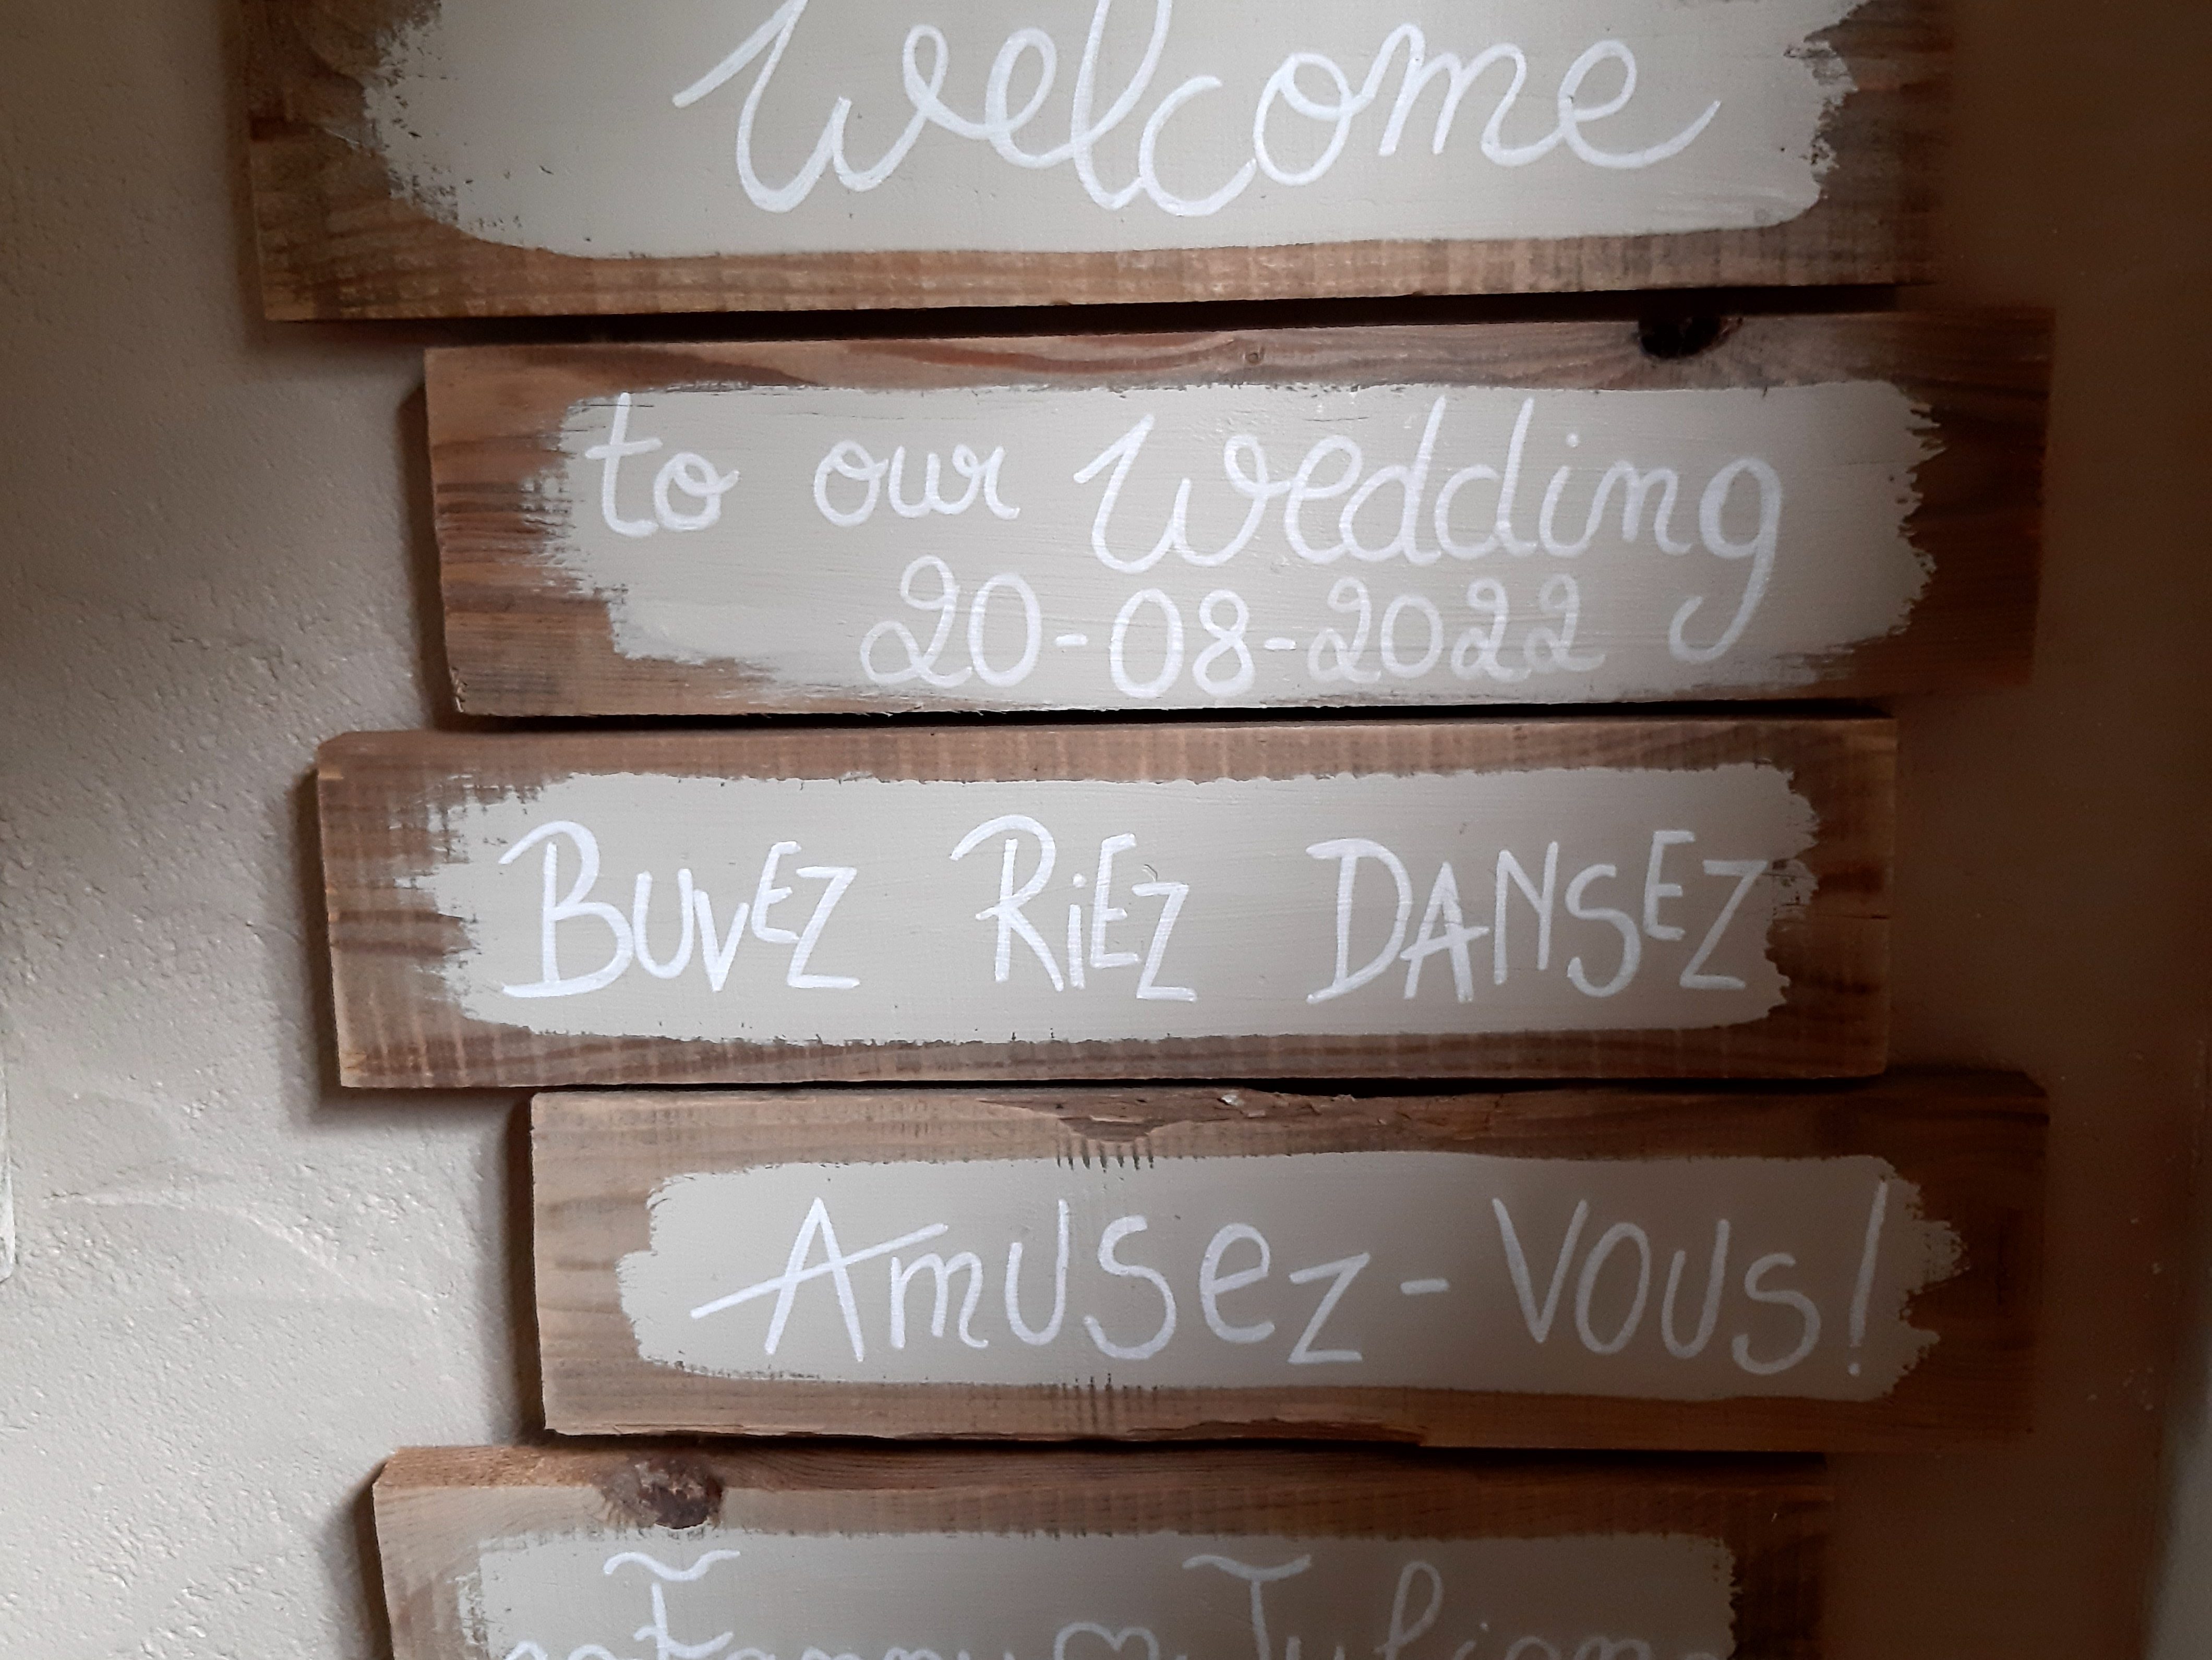 Welcome
to our Wedding
20-08-2022
BUVEZ RiEZ DANSEZ
AmUSeZ-VOUS!
Fanny